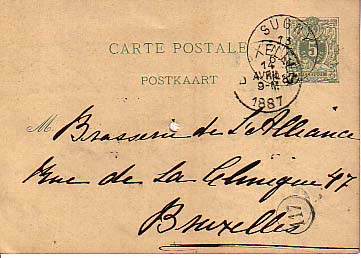 CARTE POSTALE
POSTKAART
5
14
AVRIL
9-M
1887
M. Brasserie de L'Alliance
Rue de La Clinique 47
Bruxelles